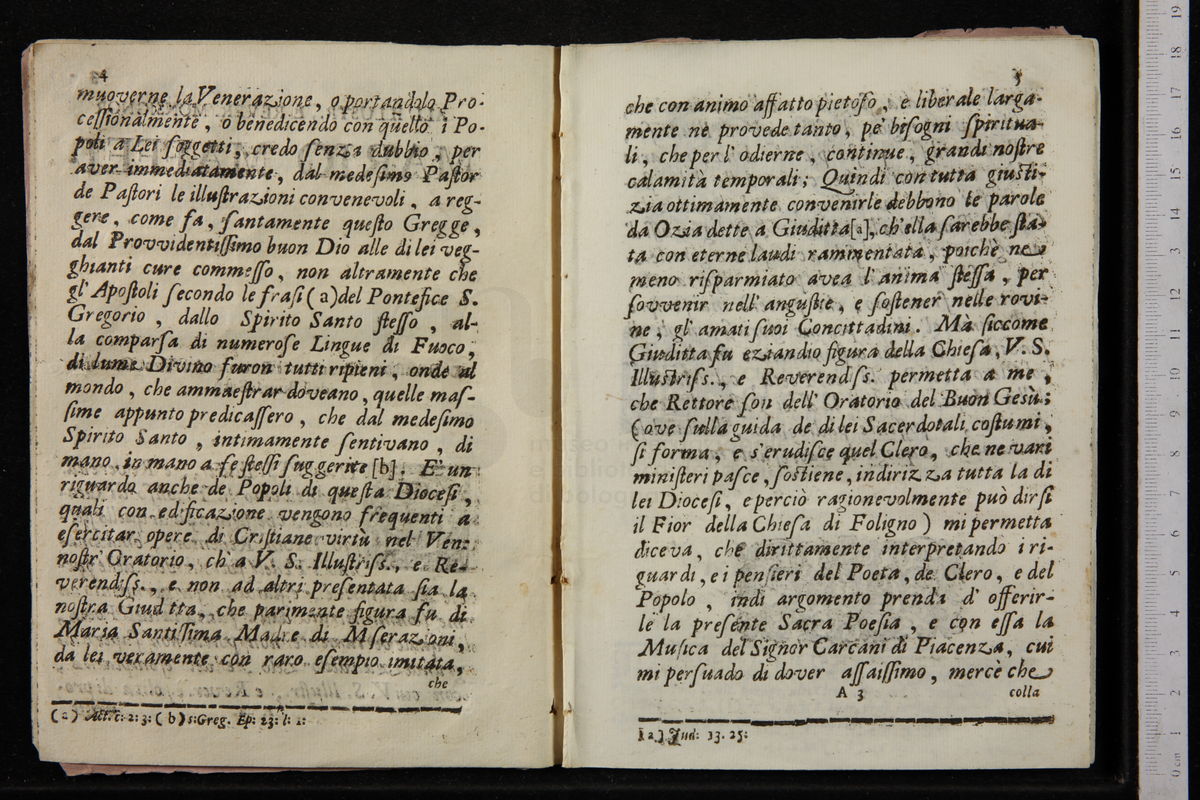 4
muoverne la Venerazione, o portandolo Pro-
ceſſionalmente, o benedicendo con quello i Po-
poli a Lei ſoggetti, credo ſenza dubbio, per
aver immediatamente, dal medeſimo Paſtor
de Paſtori le illuſtrazioni convenevoli, a reg-
gere, come fa, ſantamente queſto Gregge,
dal Provvidentiſſimo buon Dio alle di lei veg-
ghianti cure commeſſo, non altramente che
gl' Apoſtoli ſecondo le fraſi (a) del Pontefice S.
Gregorio, dallo Spirito Santo ſteſſo, al-
la comparſa di numeroſe Lingue di Fuoco,
di lume Divino furon tutti ripieni, onde al
mondo, che ammaeſtrar doveano, quelle maſ-
ſime appunto predicaſſero, che dal medeſimo
Spirito Santo, intimamente ſentivano, di
mano in mano a ſe ſteſſi ſuggerite [b]. E' un
riguardo anche de Popoli di queſta Dioceſi,
quali con edificazione vengono frequenti a
eſercitar opere di Criſtiane virtù nel Ven:
noſtr' Oratorio, ch' a V. S. Illuſtriſs., e Re-
verendiſs., e non ad altri preſentata ſia la
noſtra Giud tta, che parimente figura fu di
Maria Santiſſima Madre di M ſerazioni,
da lei veramente con raro eſempio imitata,
che
(a) Act. c: 2: 3: (b) s: Greg. Ep: 23: l: 1:
5
che con animo affatto pietoſo, e liberale larga-
mente ne provede tanto, pe' biſogni ſpiritua-
li, che per l' odierne, continue, grandi noſtre
calamità temporali; Quindi con tutta giuſti-
zia ottimamente convenirle debbono le parole
da Ozia dette a Giuditta [a], ch' ella ſarebbe ſta-
ta con eterne laudi rammentata, poichè ne
meno riſparmiato avea l' anima ſteſſa, per
ſovvenir nell' anguſtie, e ſoſtener nelle rovi-
ne, gl' amati ſuoi Concittadini. Mà ſiccome
Giuditta fu eziandio figura della Chieſa, V. S.
Illuſtriſs., e Reverendſs. permetta a me,
che Rettore ſon dell' Oratorio del Buon Gesù;
(ove ſulla guida de di lei Sacerdotali coſtumi,
ſi forma, e s'erudiſce quel Clero, che ne vari
miniſteri paſce, ſoſtiene, indirizza tutta la di
lei Dioceſi, e perciò ragionevolmente può dirſi
il Fior della Chieſa di Foligno) mi permetta
diceva, che dirittamente interpretando i ri-
guardi, e i penſieri del Poeta, de Clero, e del
Popolo, indi argomento prenda d' offerir-
le la preſente Sacra Poeſia, e con eſſa la
Muſica del Signor Carcani di Piacenza, cui
mi perſuado di dover aſſaiſſimo, mercè che
A 3
colla
[a] Jud: 33. 25: